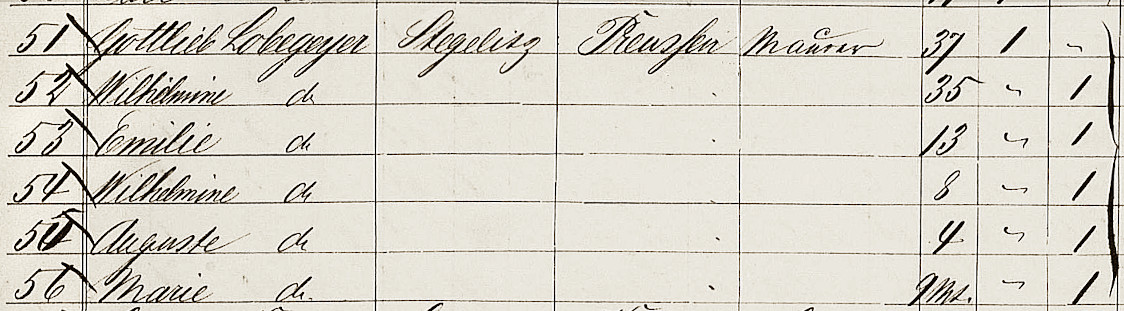 51 Gottlieb Lobegeyer Stegelitz Preussen Maurer 37 1 "
52 Wilhelmine do 35 " 1
53 Emilie do 13 " 1
54 Wilhelmine do 8 " 1
55 Auguste do 4 " 1
56 Marie do. 9 Mt. " 1